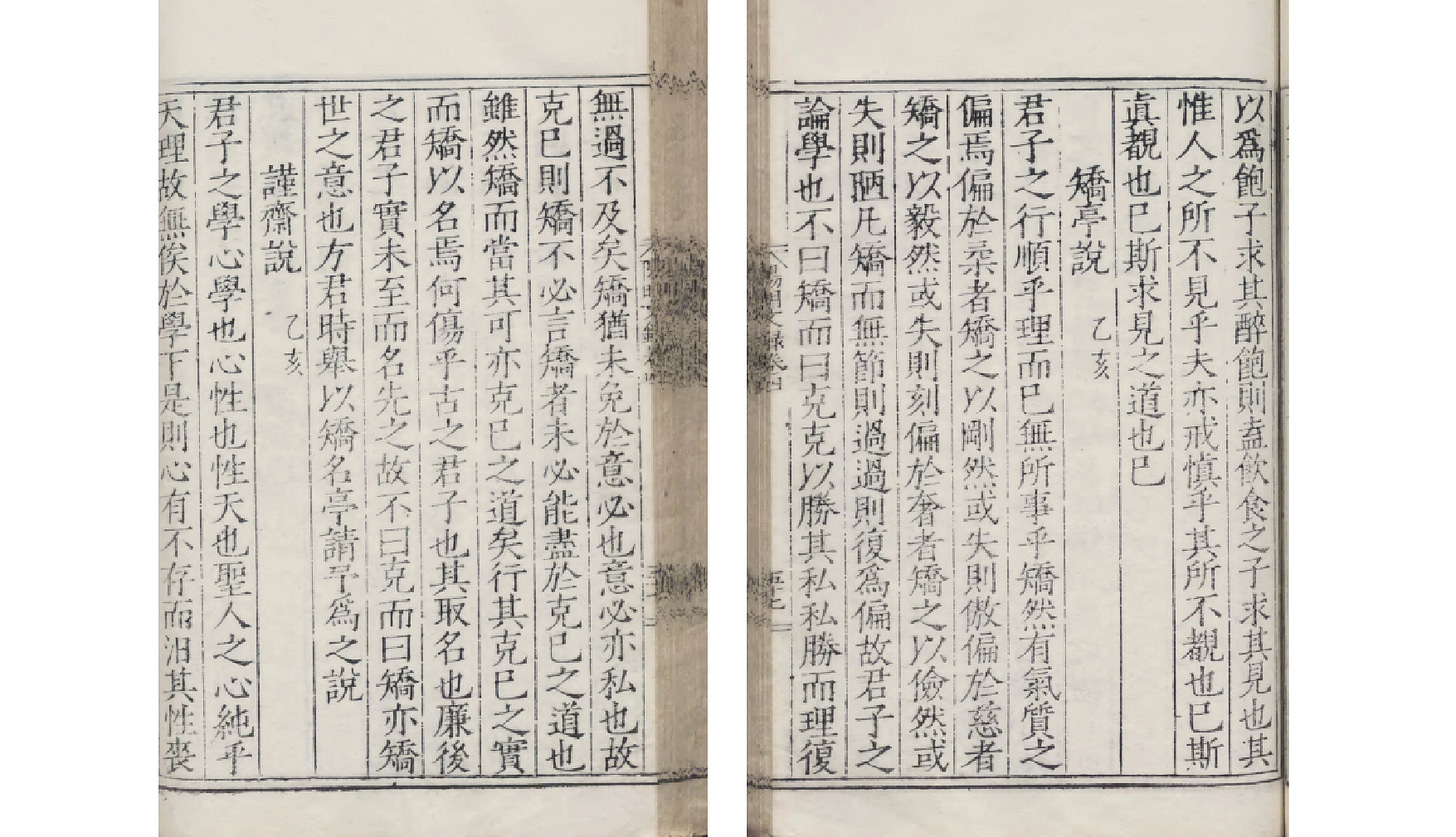 以爲飽子求其醉飽則盍飲食之子求其見也其
惟人之所不見乎夫亦戒慎乎其所不覩也已斯
真覩也已斯求見之道也已
矯亭說 乙亥
君子之行順乎理而已無所事乎矯然有氣質之
偏焉偏於柔者矯之以剛然或失則傲偏於慈者
矯之以毅然或失則刻偏於奢者矯之以儉然或
失則陋凡矯而無節則過過則復爲偏故君子之
論學也不曰矯而曰克克以勝其私私勝而理復
無過不及矣矯猶未免於意必也意必亦私也故
克已則矯不必言矯者未必能盡於克已之道也
雖然矯而當其可亦克已之道矣行其克已之實
而矯以名焉何傷乎古之君子也其取名也廉後
之君子實未至而名先之故不曰克而曰矯亦矯
世之意也方君時舉以矯名亭請予爲之說
謹齋說 乙亥
君子之學心學也心性也性天也聖人之心純乎
天理故無俟於學下是則心有不存而汨其性喪